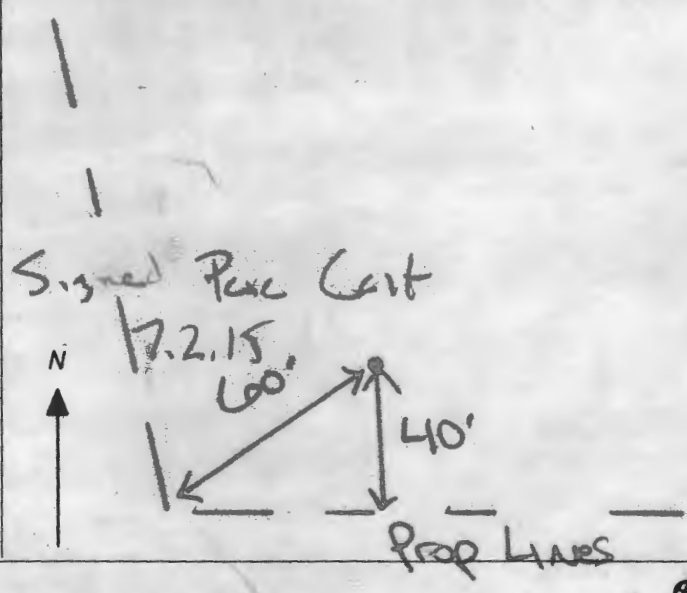 Signed Perc Cert
7.2.15
N
60'
40'
Prop Lines